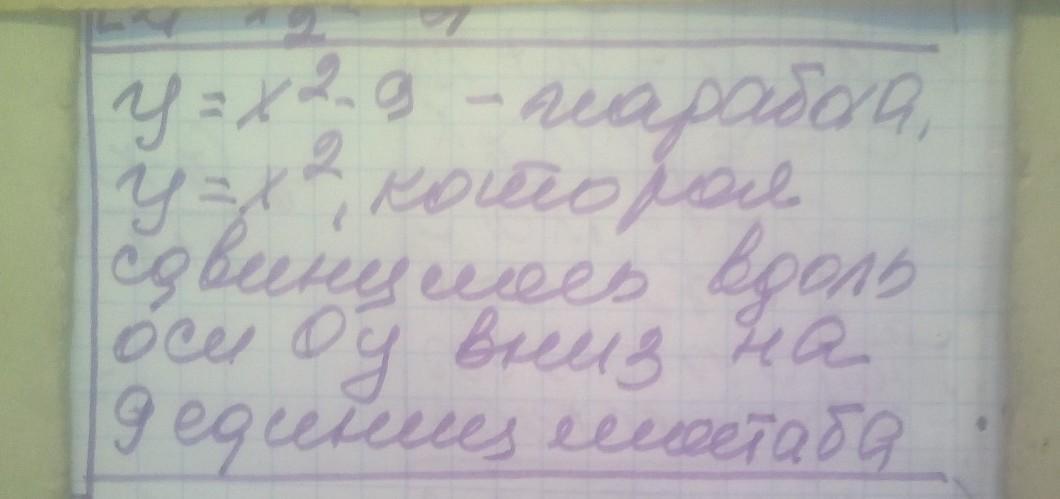 y = x² - 9 - парабола,
y = x², которая
сдвинулась вдоль
оси Oy вниз на
9 единиц масштаба